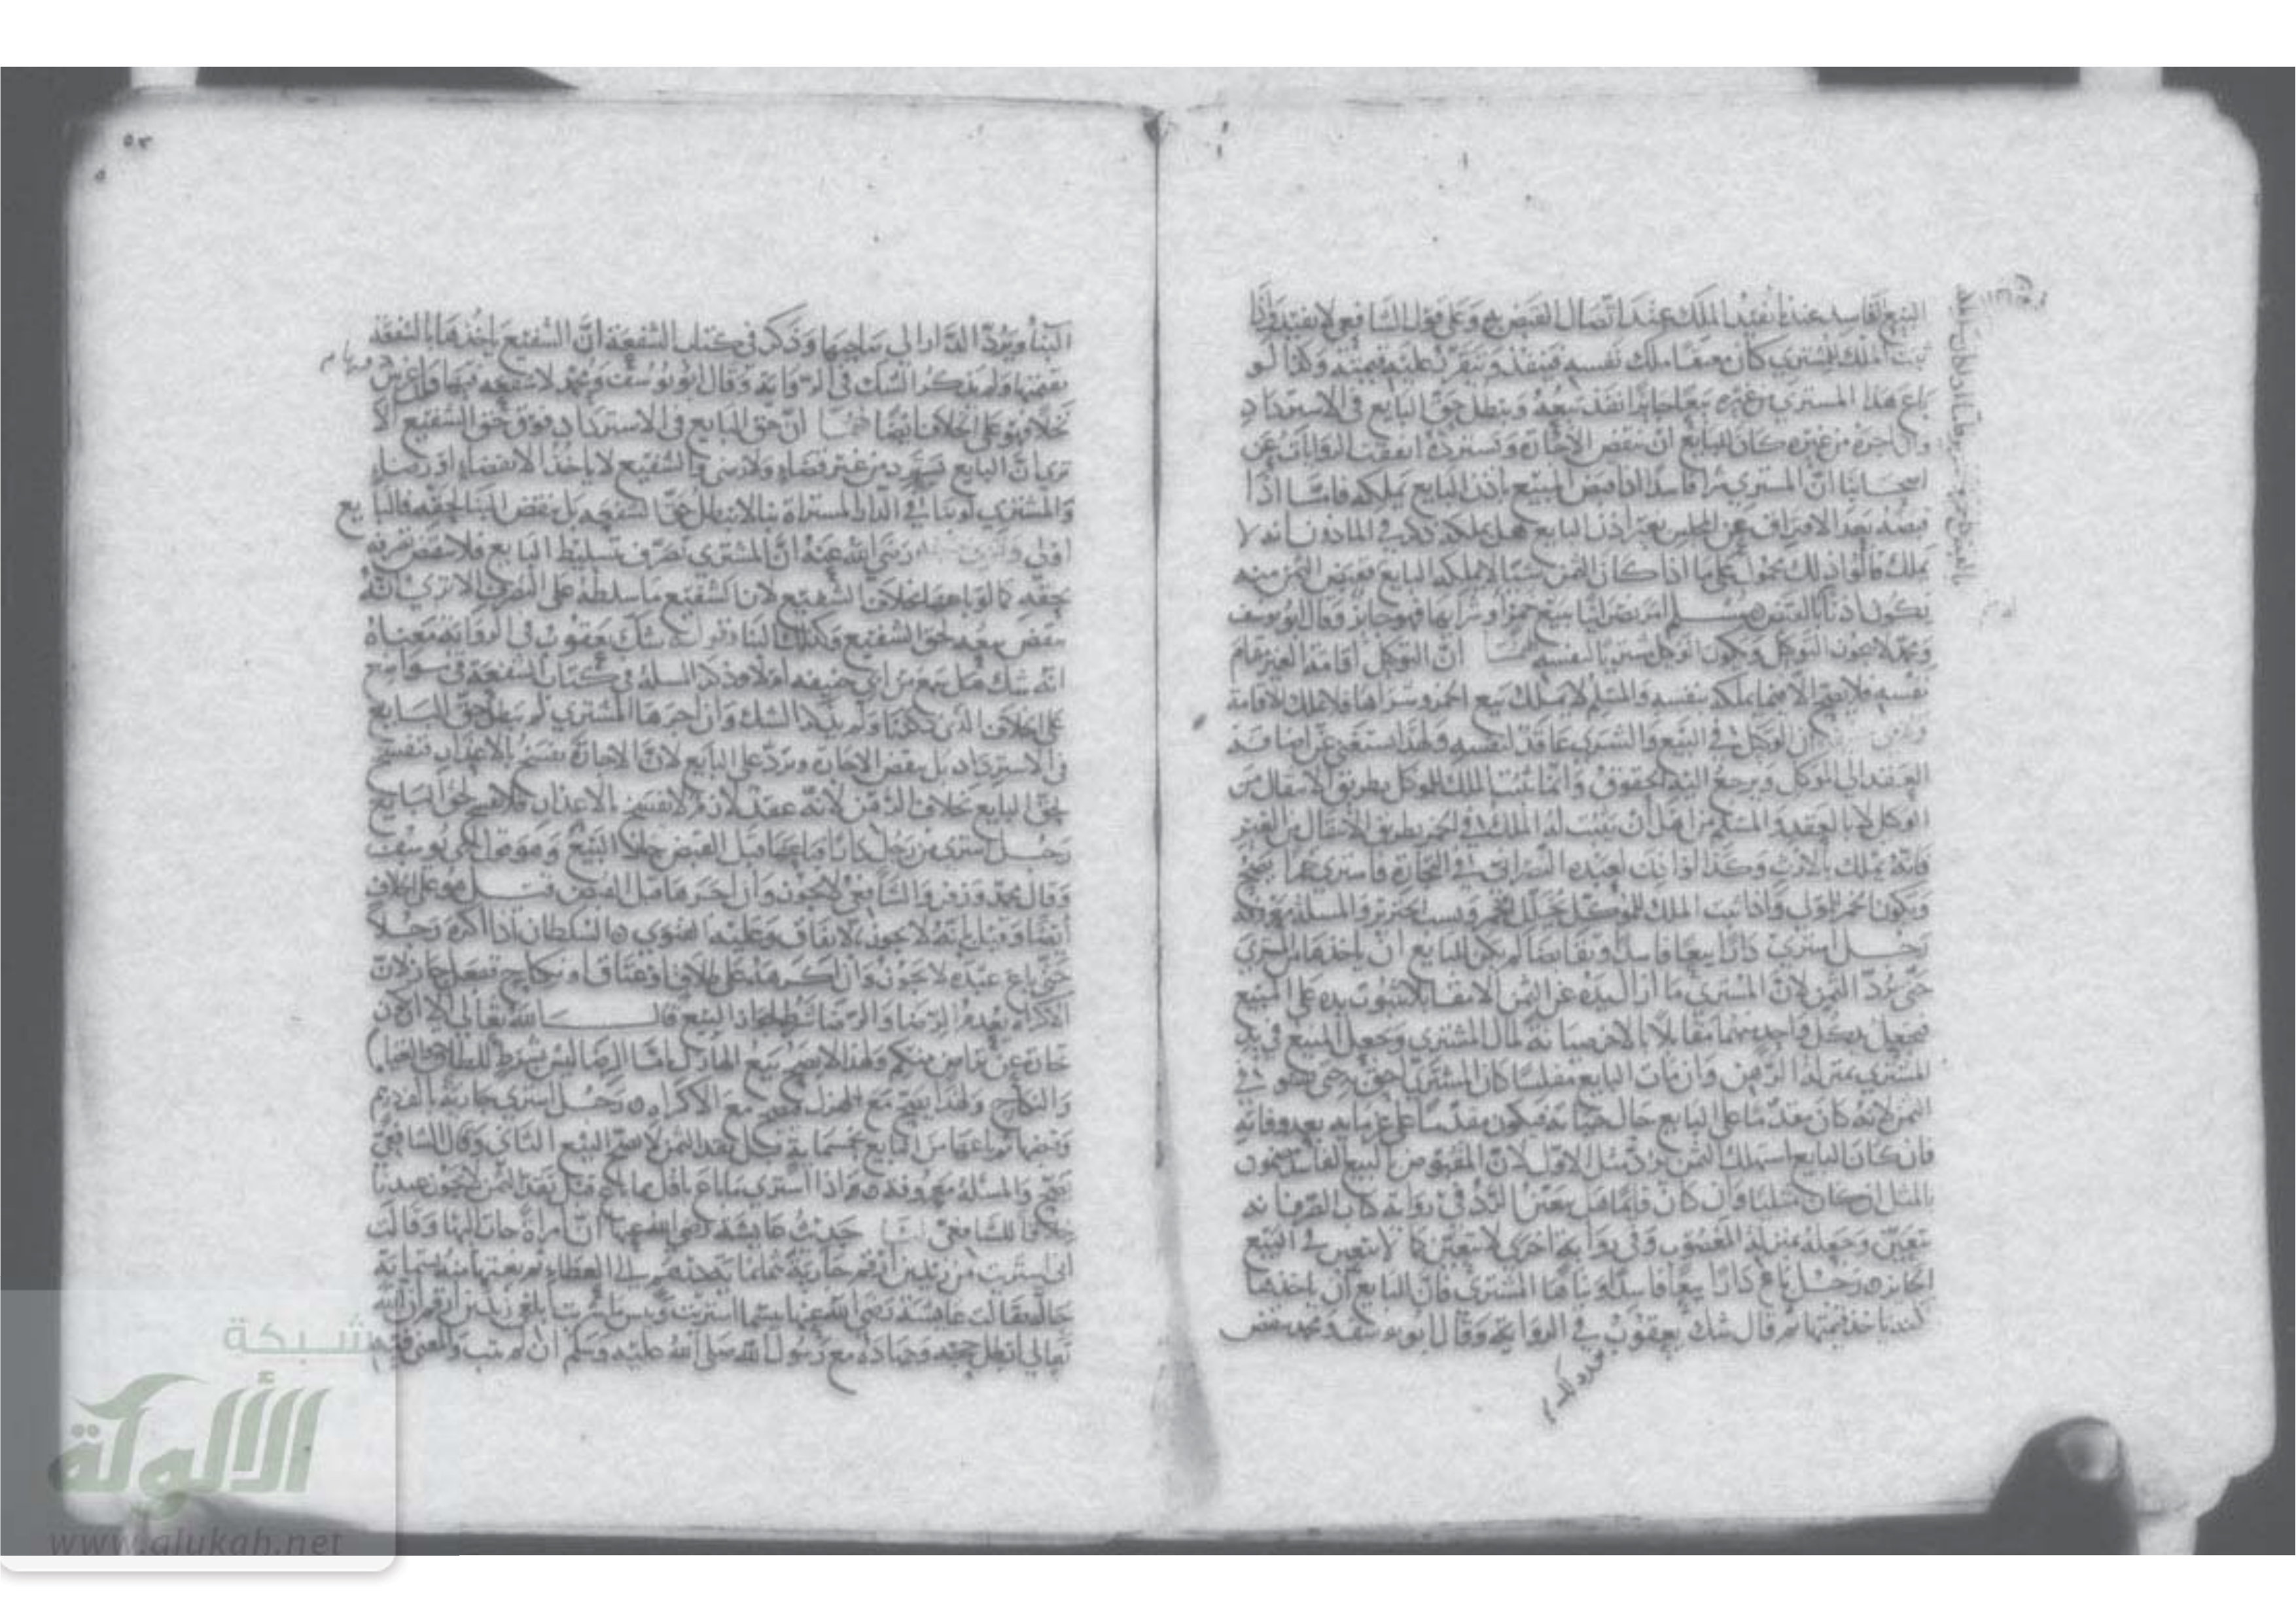 البيع الفاسد عندنا يفيد الملك عند اتصال القبض به وعلى قول الشافعي لا يفيد واذا
ثبت الملك للمشتري كان معتقا ملك نفسه فينفذ وتتقرر عليه قيمته وكذا لو
باع هذا المشتري من غيره بيعا جائزا نفذ بيعه وبطل حق البايع في الاسترداد
وان اجره من غيره كان للبايع ان ينقض الاجارة ويسترده اتفقت الروايات عن
اصحابنا ان المشتري شرا فاسدا اذا قبض المبيع باذن البايع يملكه فاما اذا
قبضه بعد الافتراق عن المجلس بغير اذن البايع هل يملكه ذكر في الماذون انه لا
يملك قالوا ذلك محمول على ما اذا كان الثمن شيئا لا يملكه البايع فقبض الثمن منه
يكون اذنا بالقبض مسلم امر نصرانيا ببيع خمر او شرايها فهو جائز وقال ابو يوسف
ومحمد لا يجوز التوكيل ويكون الوكيل مشتريا لنفسه لهما ان التوكيل اقامة الغير مقام
نفسه فلا يصح الا فيما يملكه بنفسه والمسلم لا يملك بيع الخمر وشراها فلا يملك الاقامة
ان الوكيل في البيع والشرى عاقد لنفسه ولهذا يستغنى عن اضافة
العقد الى الموكل ويرجع اليه الحقوق وانما يثبت الملك للموكل بطريق الانتقال من
الوكيل لا بالعقد والمسلم من اهل ان يثبت له الملك في الخمر بطريق الانتقال من الغير
فانه يملك بالارث وكذا لو اذن لعبده النصراني في التجارة فاشترى خمرا يصح
ويكون الخمر للمولى واذا ثبت الملك للموكل يخلل الخمر ويسيب الخنزير والمسلة معروفة
رجل اشترى دارا بيعا فاسدا وتقابضا لم يكن للبايع ان ياخذها من المشتري
حتى يرد الثمن لان المشتري ما ازال يده عن الثمن الا مقابلا لثبوت يده على المبيع
فيجعل يد كل واحد منهما مقابلا بالاخر صيانة لمال المشتري وجعل المبيع في يد
المشتري بمنزلة الرهن وان مات البايع مفلسا كان المشتري احق به حتى يستوفي
الثمن لانه كان مقدما على البايع حال حياته فيكون مقدما على غرمايه بعد وفاته
فان كان البايع استهلك الثمن يرد مثل الاول لان المقبوض بالبيع الفاسد مضمون
بالمثل ان كان مثليا وان كان قايما هل يتعين للرد في رواية كتاب الصرف انه
يتعين وجعله بمنزلة المغصوب وفي رواية اخرى لا يتعين كما لا يتعين في البيع
الجائز رجل باع دارا بيعا فاسدا وبناها المشتري فان البايع ان ياخذها
لكنه ياخذ قيمتها ثم قال شك يعقوب في الرواية وقال ابو يوسف ومحمد ينقض
البناء ويرد الدار الى صاحبها وذكر في كتاب الشفعة ان الشفيع ياخذها بالشفعة
بقيمتها ولم يذكر الشك في الرواية وقال ابو يوسف ومحمد لا شفعة فيها ولو غرس
نخلا فهو على الخلاف ايضا لهما ان حق البايع في الاسترداد فوق حق الشفيع الا
ترى ان البايع يسترد من غير قضاء ولا رضى والشفيع لا ياخذ الا بقضاء او رضاء
والمشتري لو بنا في الدار المشتراة بنا لا يبطل حق الشفعة بل ينقض البنا لحقه فالبايع
اولى رضي الله عنه ان المشتري تصرف بتسليط البايع فلا ينقض تصرفه
بحقه كما لو باعها بخلاف الشفيع لان الشفيع ما سلطه على التصرف الا ترى انه
ينقض بيعه لحق الشفيع وكذلك البناء قوله شك يعقوب في الرواية معناه
انه شك هل سمع من ابي حنيفة ام لا وذكر المسلة في كتاب الشفعة في مواضع
على الخلاف الذي ذكرنا ولم يذكر الشك وان اجرها المشتري لم يبطل حق البايع
في الاسترداد بل ينقض الاجارة ويرد على البايع لان الاجارة تفسخ بالاعذار فتنفسخ
لحق البايع بخلاف الرهن لانه عقد لازم لا تفسخ بالاعذار فلا تفسخ لحق البايع
رجل اشترى من رجل دارا فباعها قبل القبض جاز البيع وهو قول ابي يوسف
وقال محمد وزفر والشافعي لا يجوز وان اجرها قبل القبض قيل هو على الخلاف
ايضا وقيل بانه لا يجوز بالاتفاق وعليه الفتوى السلطان اذا اكره رجلا
حتى باع عبده لا يجوز وان اكرهه على طلاق او عتاق او نكاح ففعل جاز لان
الاكراه يعدم الرضا والرضا شرط لجواز البيع قال الله تعالى الا ان تكون
تجارة عن تراض منكم ولهذا لا يصح بيع الهازل فاما الرضا ليس بشرط للطلاق والعتاق
والنكاح ولهذا يصح مع الهزل فيصح مع الاكراه رجل اشترى جارية بالف درهم
وقبضها ثم باعها من البايع بخمسماية قبل نقد الثمن لا يصح البيع الثاني وقال الشافعي
يصح والمسلة معروفة واذا اشترى ما باع باقل مما باع قبل نقد الثمن لا يجوز عندنا
خلافا للشافعي لنا حديث عايشة رضي الله عنها ان امراة جات اليها وقالت
اني اشتريت من زيد بن ارقم جارية بثمانماية درهم الى العطاء ثم بعتها منه بستماية
حالة فقالت عايشة رضي الله عنها بيسما اشتريت وبيسما شريت ابلغي زيد بن ارقم ان الله
تعالى ابطل حجه وجهاده مع رسول الله صلى الله عليه وسلم ان لم يتب والمعنى فيه
شبكة
الألوكة
www.alukah.net